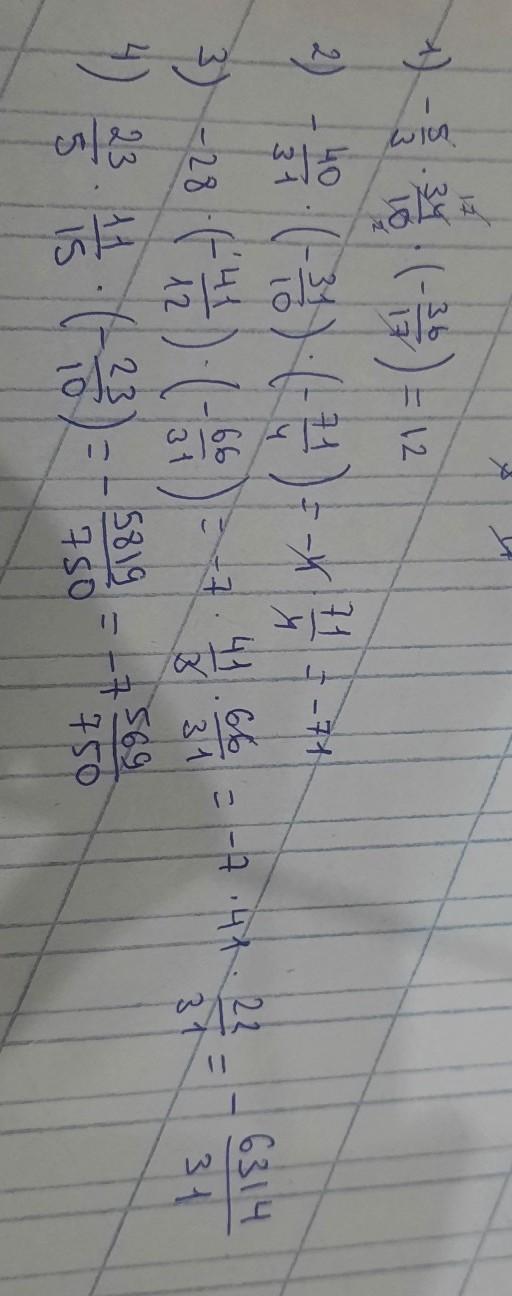 1) -5/3 · 34/10 · (-36/17) = 12
2) -40/31 · (-31/10) · (-71/4) = -4 · 71/4 = -71
3) -28 · (-41/12) · (-66/31) = -7 · 41/3 · 66/31 = -7 · 41 · 22/31 = -6314/31
4) 23/5 · 11/15 · (-23/10) = -5819/750 = -7 569/750